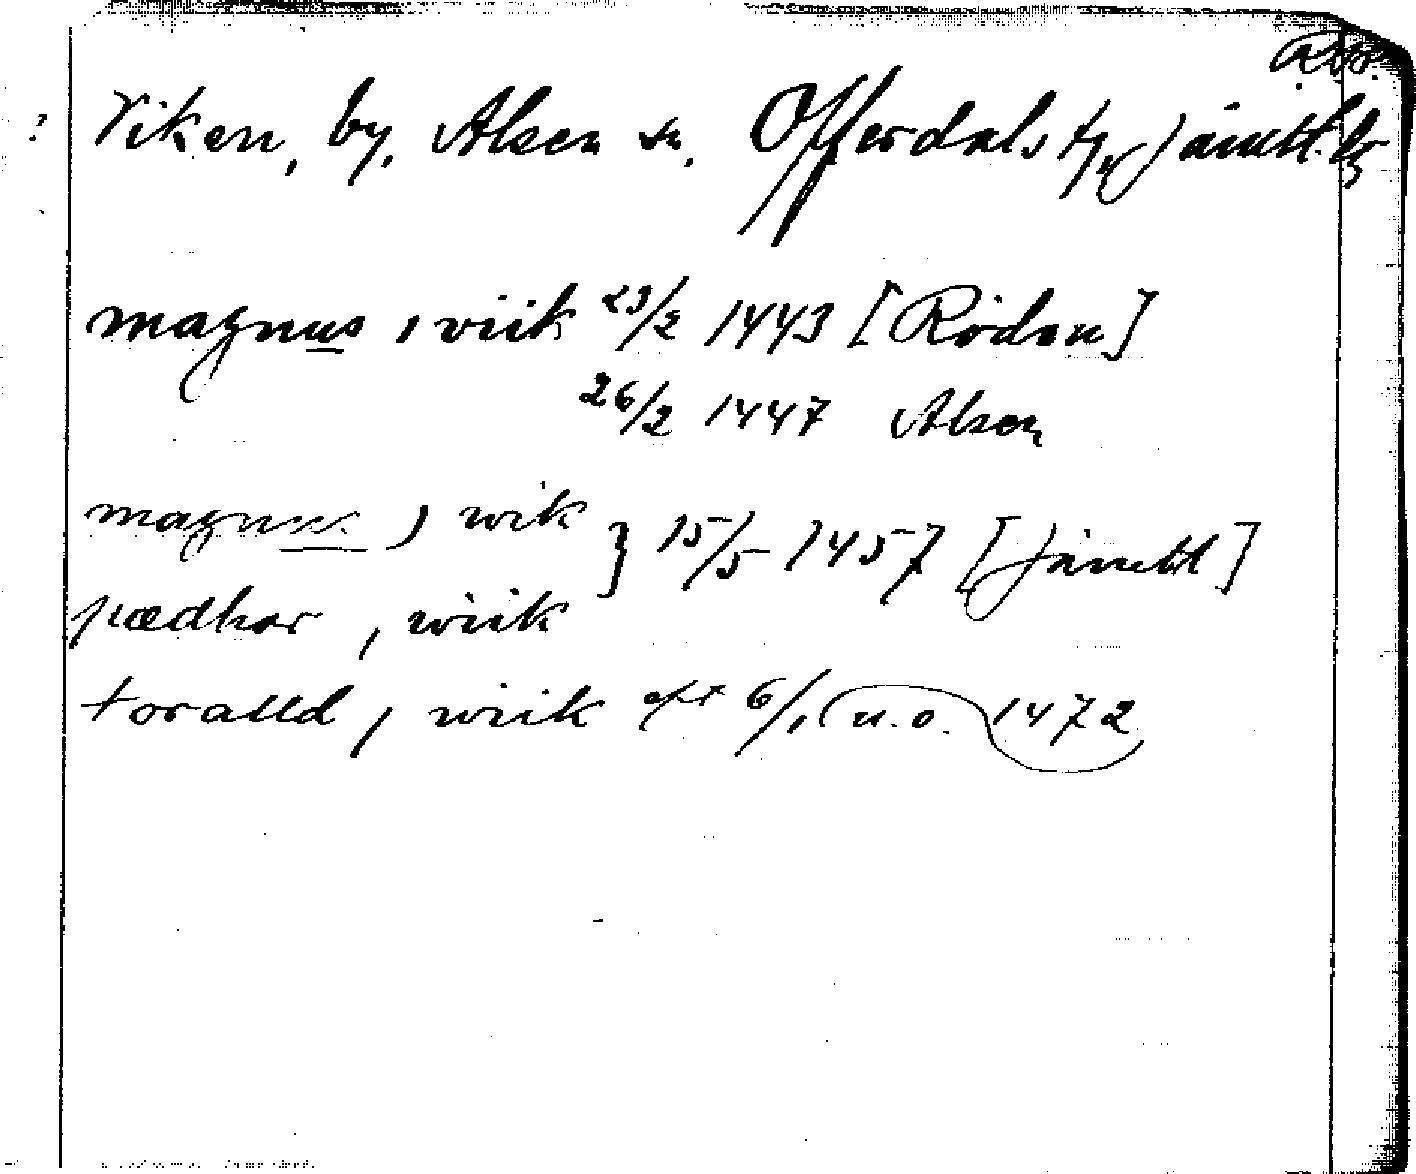 Viken, by, Alsen sn, Offerdals tg, Jämtl. l
magnus i viik 23/2 1443 [Rödön]
26/2 1447 Alsen
magnus j wik } 15/5 1457 [Jämtl]
pædhar j wiik
toralld j wiik eft 6/1 (u.o.) 1472